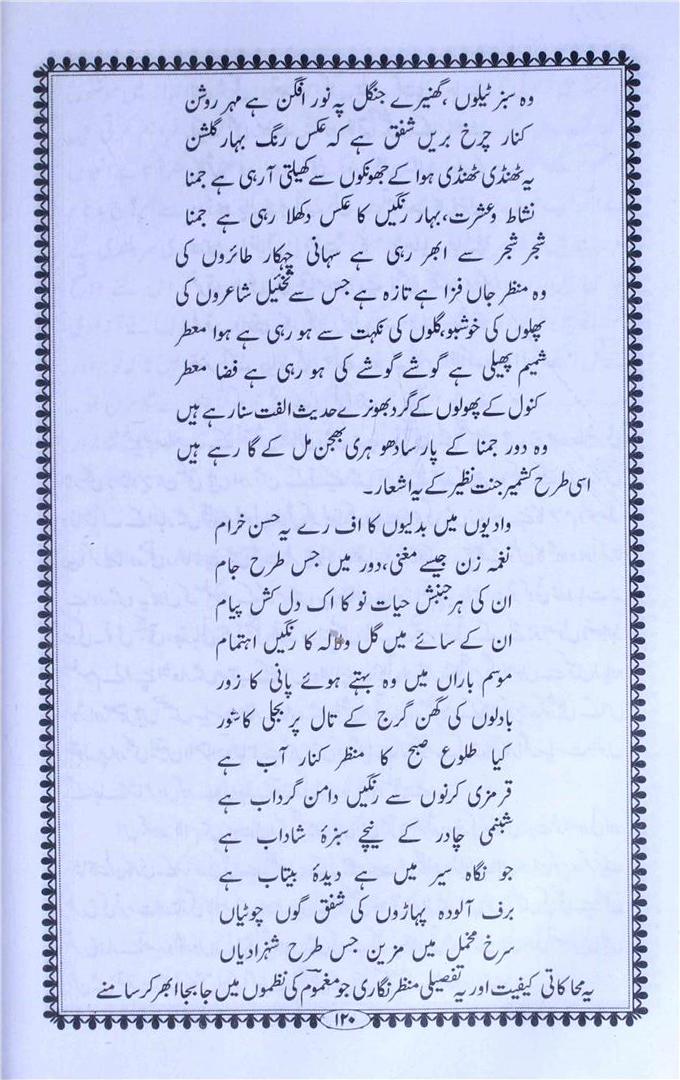 وہ سبز ٹیلوں، گھنیرے جنگل پہ نور افگن ہے مہر روشن
کنار چرخ بریں شفق ہے کہ عکس رنگ بہار گلشن
یہ ٹھنڈی ٹھنڈی ہوا کے جھونکوں سے کھیلتی آرہی ہے جمنا
نشاط و عشرت، بہار رنگیں کا عکس دکھلا رہی ہے جمنا
شجر شجر سے ابھر رہی ہے سہانی چہکار طائروں کی
وہ منظر جاں فزا ہے تازہ ہے جس سے تخئیل شاعروں کی
پھلوں کی خوشبو، گلوں کی نکہت سے ہو رہی ہے ہوا معطر
شمیم پھیلی ہے گوشے گوشے کی ہو رہی ہے فضا معطر
کنول کے پھولوں کے گرد بھونرے حدیث الفت سنا رہے ہیں
وہ دور جمنا کے پار سادھو ہری بھجن مل کے گا رہے ہیں
اسی طرح کشمیر جنت نظیر کے یہ اشعار۔
وادیوں میں بدلیوں کا اف رے یہ حسن خرام
نغمہ زن جیسے مغنی، دور میں جس طرح جام
ان کی ہر جنبش حیات نو کا اک دل کش پیام
ان کے سائے میں گل ولالہ کا رنگیں اہتمام
موسم باراں میں وہ بہتے ہوئے پانی کا زور
بادلوں کی گھن گرج کے تال پر بجلی کا شور
کیا طلوع صبح کا منظر کنار آب ہے
قرمزی کرنوں سے رنگیں دامن گرداب ہے
شبنمی چادر کے نیچے سبزۂ شاداب ہے
جو نگاہ سیر میں ہے دیدۂ بیتاب ہے
برف آلودہ پہاڑوں کی شفق گوں چوٹیاں
سرخ مخمل میں مزین جس طرح شہزادیاں
یہ محاکاتی کیفیت اور یہ تفصیلی منظر نگاری جو مغموم کی نظموں میں جابجا ابھر کر سامنے
۱۲۰